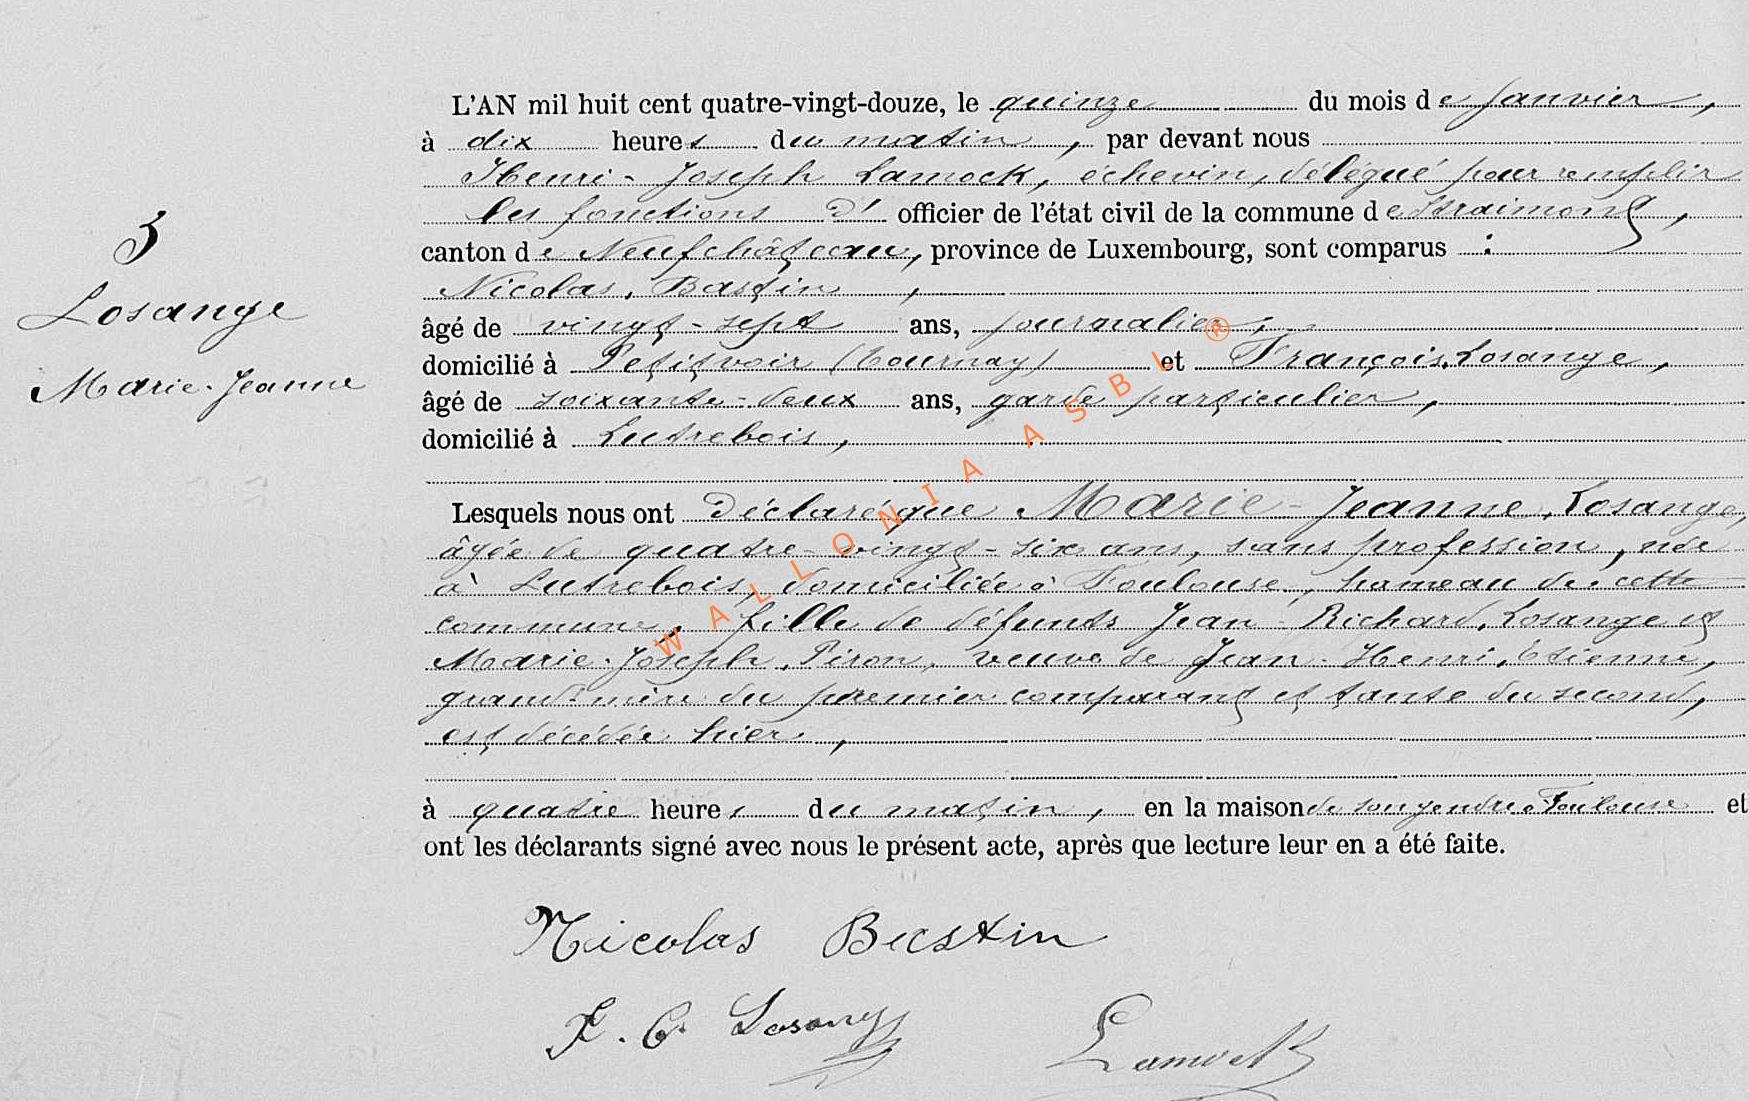 L'AN mil huit cent quatre-vingt-douze, le quinze du mois de Janvier,
à dix heures du matin, par devant nous
Henri-Joseph Lamock, échevin, délégué pour remplir
les fonctions d' officier de l'état civil de la commune de Straimont,
canton de Neufchâteau, province de Luxembourg, sont comparus :
Nicolas, Bastin,
âgé de vingt-sept ans, journalier,
domicilié à Petitvoir (Tournay) et François, Losange,
âgé de soixante-deux ans, garde particulier,
domicilié à Lutrebois,
3
Losange
Marie-Jeanne
Lesquels nous ont déclaré que Marie-Jeanne, Losange,
âgée de quatre-vingt-six ans, sans profession, née
à Lutrebois, domiciliée à Toulouse, hameau de cette
commune, fille de défunts Jean-Richard, Losange et
Marie-Joseph, Piron, veuve de Jean-Henri, Etienne,
grand-mère du premier comparant et tante du second,
est décédée hier,
à quatre heures du matin, en la maison de son gendre à Toulouse et
ont les déclarants signé avec nous le présent acte, après que lecture leur en a été faite.
Nicolas Bastin
F. C. Losange
Lamock
WALLONIA ASBL ®